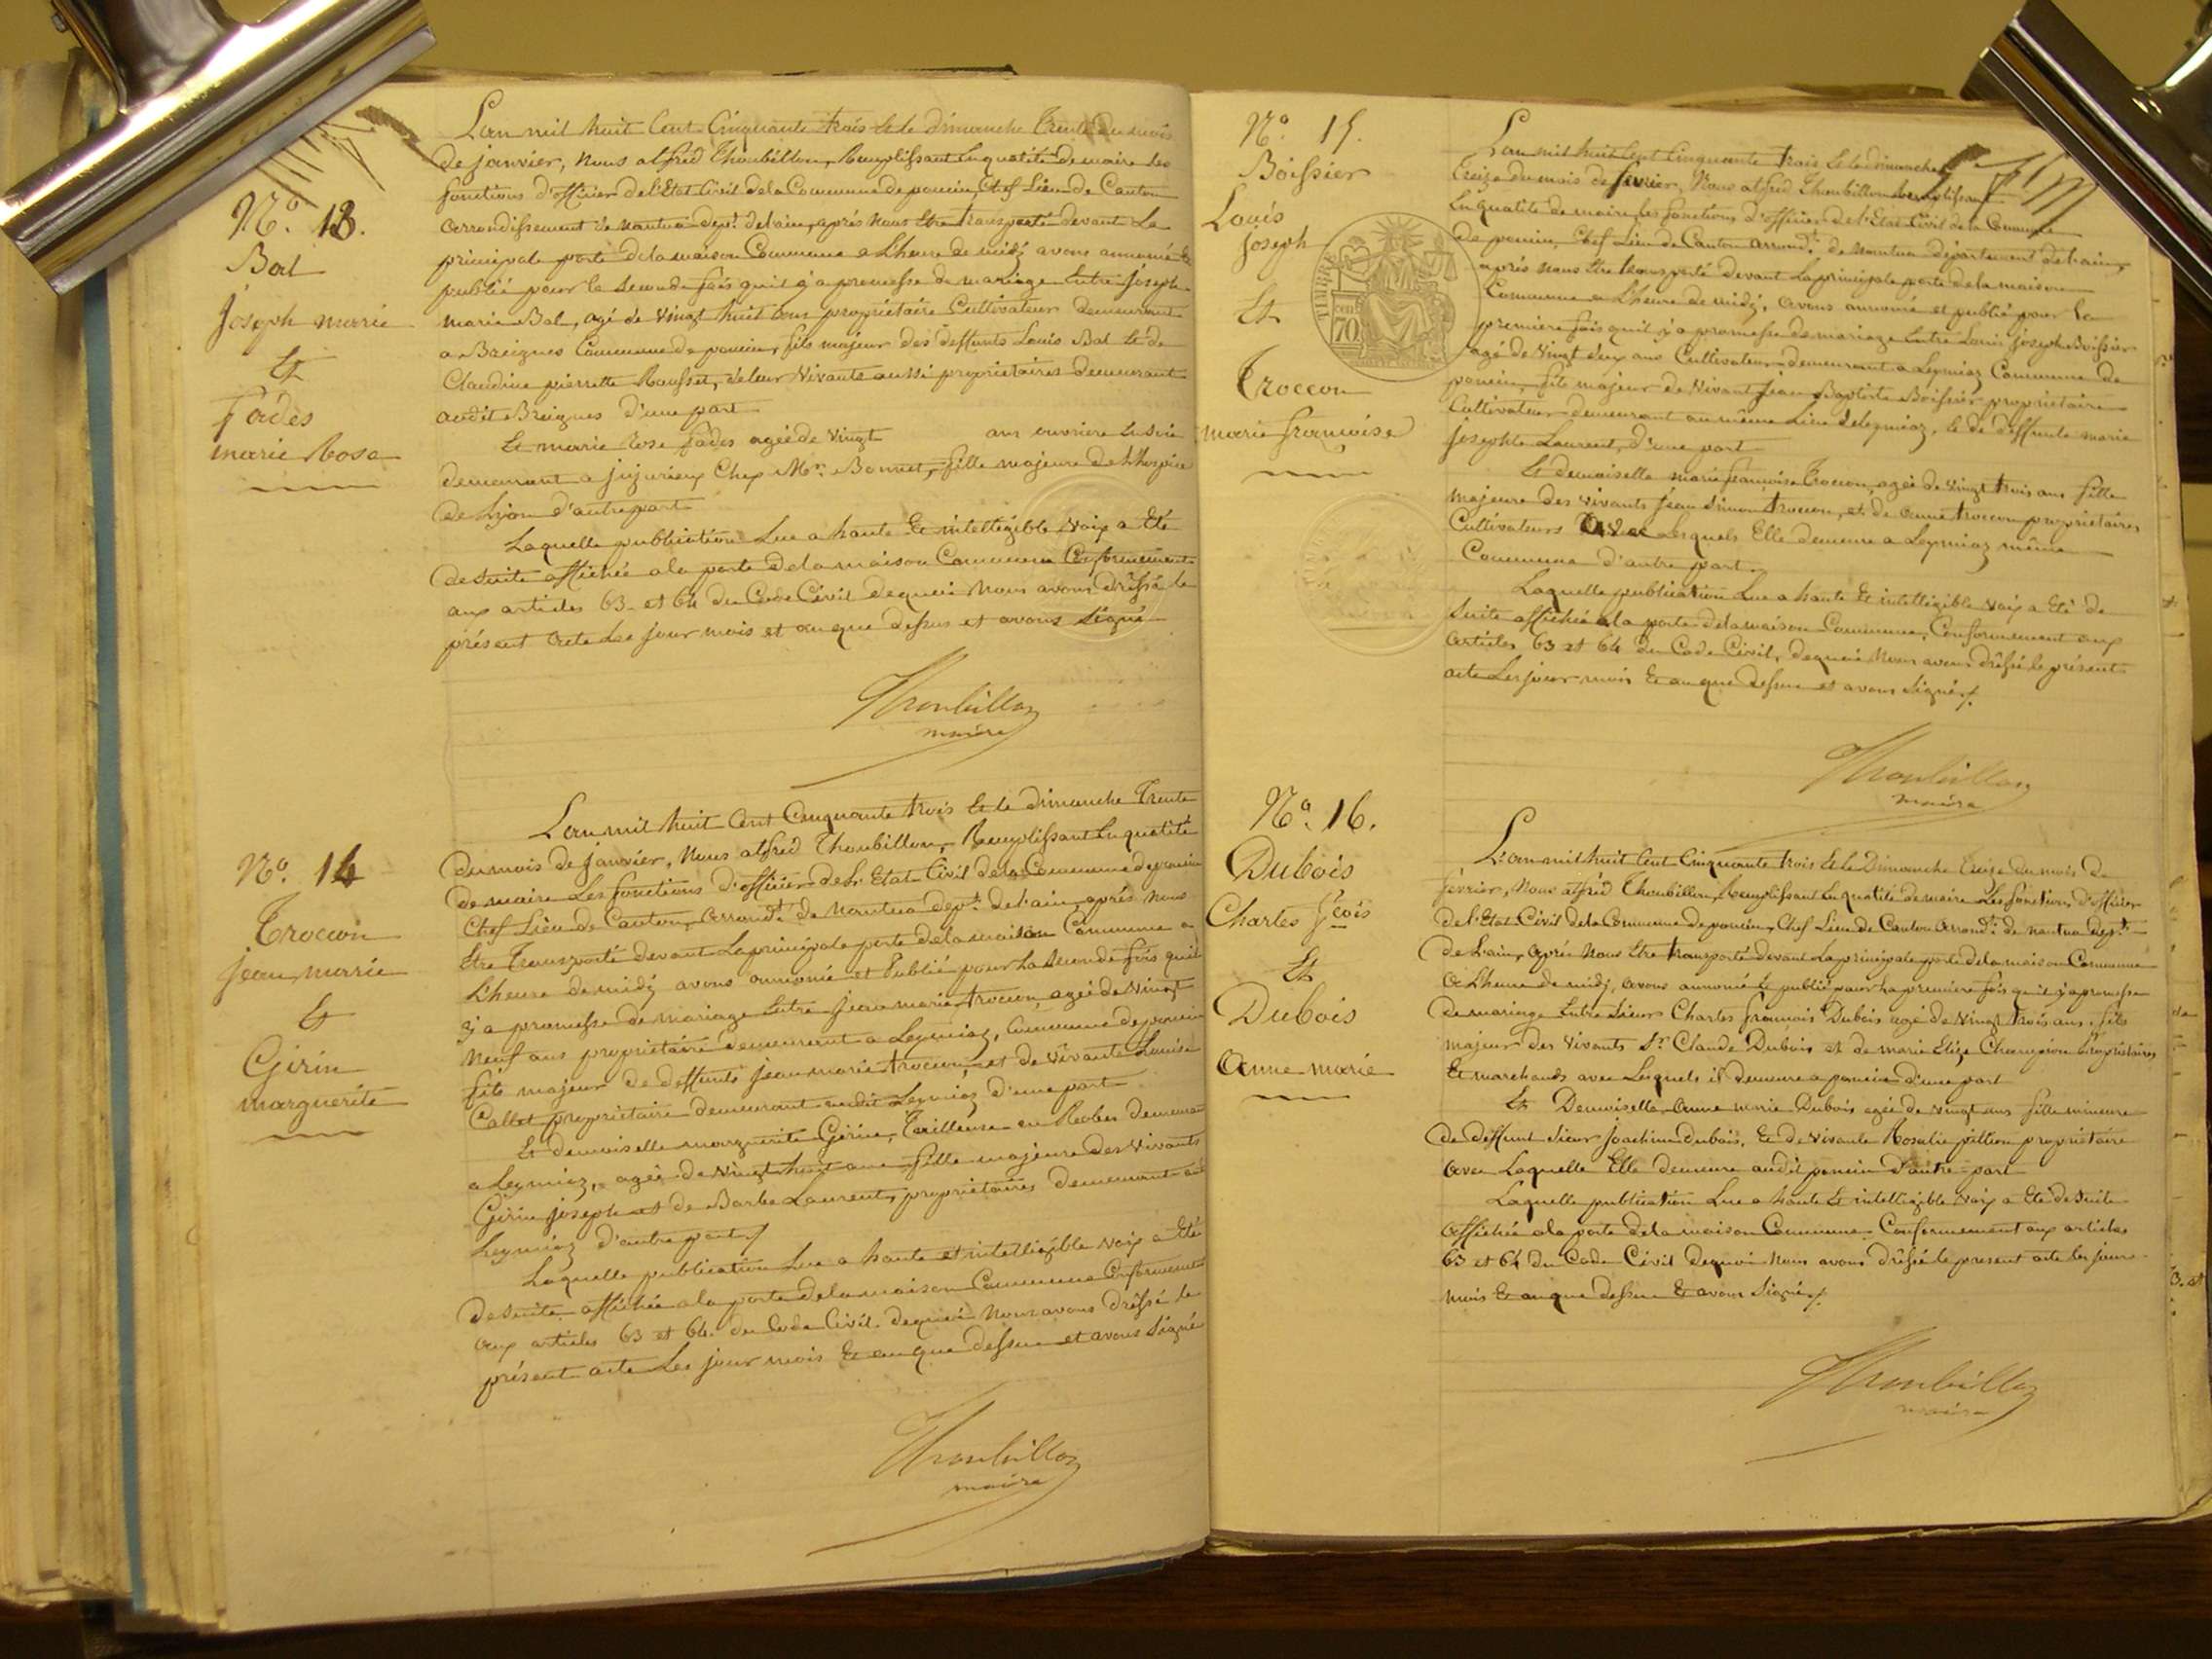 Nº. 13.
Bal
Joseph marie
Et
Fadès
marie Rose
L'an mil huit Cent Cinquante trois Et le dimanche Trente du mois
de janvier, Nous alfred Thoubillon, Remplissant En qualité de maire Les
fonctions d'officier de l'Etat Civil de la Commune de poncin, Chef Lieu de Canton
arrondissement de nantua dept. de l'ain, après Nous Etre transporté devant La
principale porte de la maison Commune a L'heure de midi avons annoncé Et
publié pour la Seconde fois qu'il y a promesse de mariage Entre joseph
marie Bal, agé de Vingt huit ans propriétaire Cultivateur demeurant
a Breignes Commune de poncin, fils majeur des deffunts Louis Bal Et de
Claudine pierrette Rousset, de leur Vivants aussi propriétaires demeurant
audit Breignes d'une part
Et marie Rose fades agée de Vingt ans ouvriere En Soie
demeurant a jujurieux Chez Mr. Bonnet, fille majeure de L'hospice
de Lyon d'autre part
Laquelle publication Lue a haute Et intelligible Voix a Eté
de Suite affichée a la porte de la maison Commune Conformément
aux articles 63 et 64 du Code Civil de quoi Nous avons dréssé le
présent acte Les jour mois et an que dessus et avons Signé
Thoubillon
maire
Nº. 14
Troccon
jean marie
Et
Girin
marguerite
L'an mil huit Cent Cinquante trois Et le dimanche Trente
du mois de janvier, Nous alfred Thoubillon, Remplissant En qualité
de maire Les fonctions d'officier de L'Etat Civil de la Commune de poncin
Chef Lieu de Canton, arrondt. de Nantua dept. de l'ain, après nous
Etre Transporté devant La principale porte de la maison Commune a
L'heure de midi avons annoncé et Publié pour La Seconde fois qu'il
y a promesse de mariage Entre jean marie troccon, agé de Vingt
Neuf ans propriétaire demeurant a Leymiaz, Commune de poncin
fils majeur de deffunts jean marie troccon et de Vivante Louise
Callet propriétaire demeurant audit Leymiaz d'une part
Et demoiselle marguerite Girin, Tailleuse en Robes demeurant
a Leymiaz, agée de Vingt huit ans fille majeure des Vivants
Girin joseph et de Barbe Laurent, propriétaires demeurant au
Leymiaz d'autre part
Laquelle publication Lue a haute et intelligible Voix a Eté
de Suite affichée a la porte de la maison Commune Conformement
aux articles 63 et 64 du Code Civil de quoi Nous avons dréssé le
présent acte Les jour mois Et an que dessus et avons Signé
Thoubillon
maire
Nº. 15.
Boissier
Louis
joseph
Et
Troccon
marie françoise
TIMBRE
70
L'an mil huit Cent Cinquante trois Et le dimanche
Treize du mois de fevrier, Nous alfred Thoubillon Remplissant
En qualité de maire, les fonctions d'officier de l'Etat Civil de la Commune
de poncin, Chef Lieu de Canton arrondt. de Nantua département de l'ain,
après nous Etre transporté devant La principale porte de la maison
Commune a L'heure de midi, avons annoncé et publié pour la
premiere fois qu'il y a promesse de mariage Entre Louis joseph Boissier
agé de Vingt deux ans Cultivateur, demeurant a Leymiaz Commune de
poncin, fils majeur de Vivant Jean Baptiste Boissier propriétaire
Cultivateur demeurant au même Lieu de Leymiaz, Et de deffunte marie
josephte Laurent, d'une part
Et demoiselle marie françoise Troccon, agée de Vingt trois ans fille
majeure des vivants jean Simon troccon, et de anne troccon propriétaires
Cultivateurs avec Lesquels Elle demeure a Leymiaz même
Commune d'autre part.
Laquelle publication Lue a haute Et intelligible Voix a Eté de
Suite affichée a la porte de la maison Commune, Conformement aux
articles 63 et 64 du Code Civil, de quoi Nous avons dréssé le présent
acte Les jour mois Et an que dessus et avons Signé
Thoubillon
maire
Nº. 16.
Dubois
Charles fçois
Et
Dubois
Anne marie
L'an mil huit Cent Cinquante trois Et le Dimanche Treize du mois de
février, Nous alfred Thoubillon, Remplissant En qualité de maire Les fonctions d'officier
de l'Etat Civil de la Commune de poncin, Chef Lieu de Canton arrondt. de nantua dept.
de L'ain, après Nous Etre transporté devant La principale porte de la maison Commune
a L'heure de midi, avons annoncé Et publié pour La premiere fois qu'il y a promesse
de mariage Entre Sieurs Charles françois Dubois agé de Vingt trois ans, fils
majeur des Vivants Sr. Claude Dubois et de marie Elize Champion Propriétaires
Et marchands avec Lesquels il demeure a poncin d'une part
Et Demoiselle Anne marie Dubois agée de vingt ans fille mineure
de deffunt Sieur joachim dubois, Et de Vivante Rosalie pillion propriétaire
avec Laquelle Elle demeure audit poncin d'autre part
Laquelle publication Lue a haute Et intelligible Voix a Eté de Suite
affichée a la porte de la maison Commune Conformement aux articles
63 et 64 du Code Civil de quoi Nous avons dréssé le present acte les jour
mois Et an que dessus Et avons Signé
Thoubillon
maire